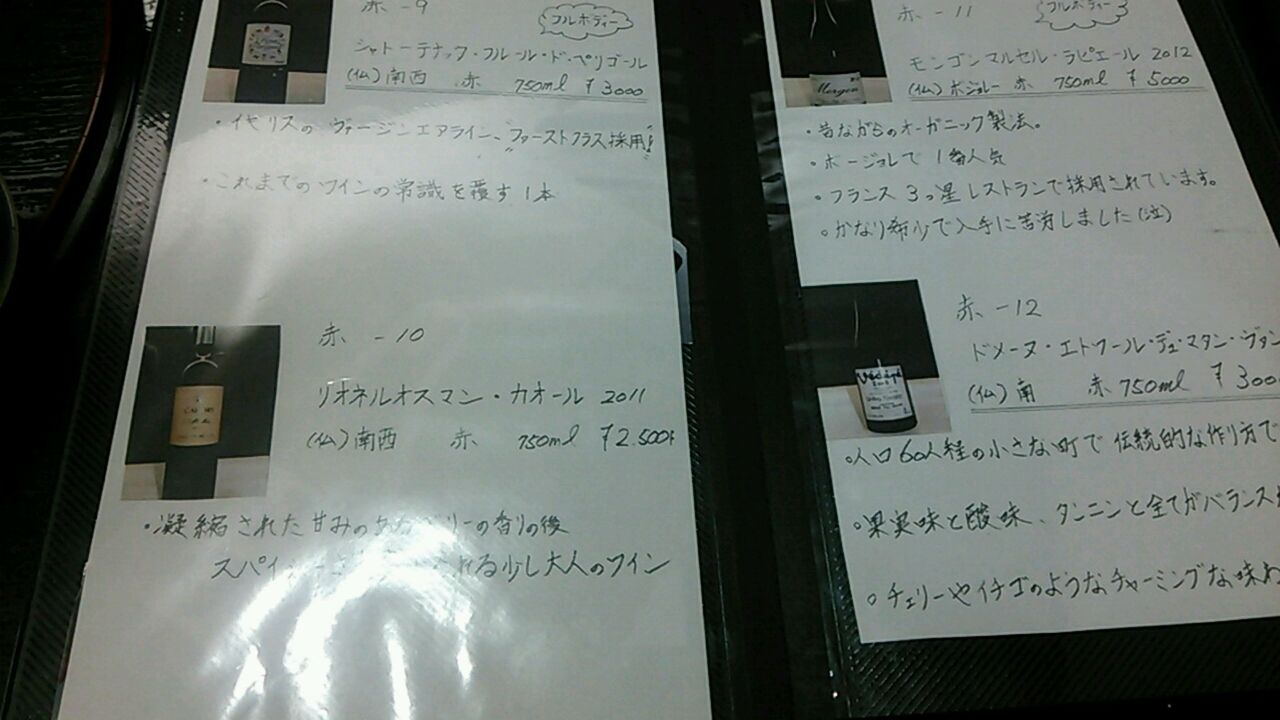 赤 -9
フルボディー
シャトーテナック・フルール・ド・ペリゴール
(仏) 南西 赤 750ml ¥3000
・イギリスの ヴァージンエアライン、"ファーストクラス採用!"
・これまでのワインの常識を覆す1本
赤 -10
リオネルオスマン・カオール 2011
(仏) 南西 赤 750ml ¥2.500
・凝縮された甘みの リーの香りの後
スパイ る少し大人のワイン
赤 -11
フルボディー
モンゴンマルセル・ラピエール 2012
(仏) ボジョレー 赤 750ml ¥5000
・昔ながらのオーガニック製法。
・ボージョレで1番人気
・フランス3つ星レストランで採用されています。
・かなり希少で入手に苦労しました(泣)
Morgon
赤 -12
ドメーヌ・エトワール・デュ・マタン・ヴァン
(仏) 南 赤 750ml ¥300
・人口60人程の小さな町で伝統的な作り方で
・果実味と酸味、タンニンと全てがバランス
・チェリーやイチゴのようなチャーミングな味わ